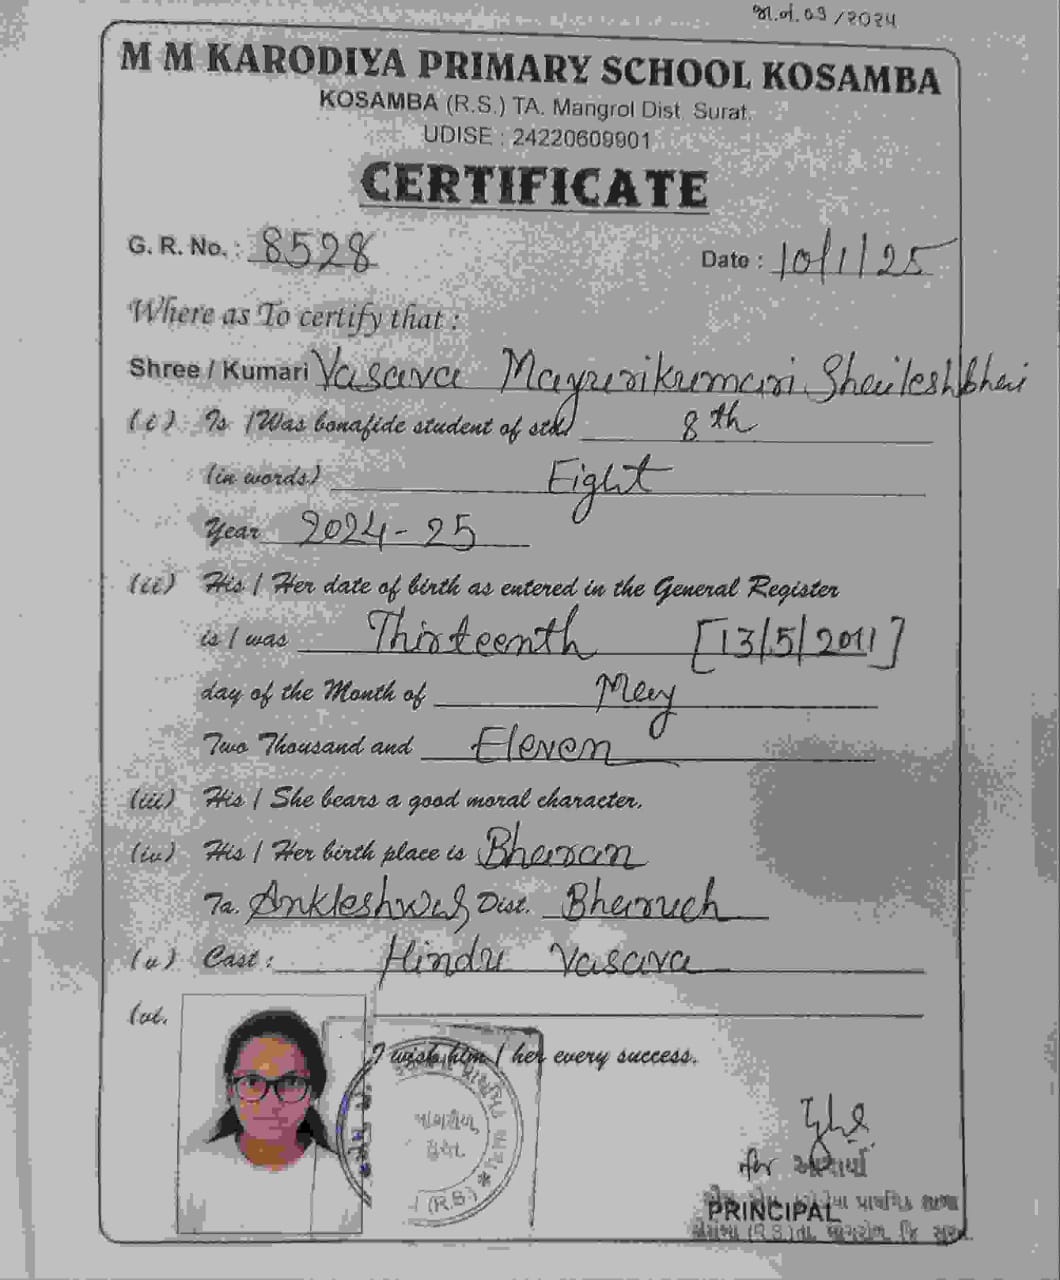 જા.નં. 09/2024
M M KARODIYA PRIMARY SCHOOL KOSAMBA
KOSAMBA (R.S.) TA. Mangrol Dist. Surat.
UDISE : 24220609901
CERTIFICATE
G. R. No. : 8528 Date : 10/1/25
Where as To certify that :
Shree / Kumari Vasava Mayurikumari Shaileshbhai
(i) Is / Was bonafide student of std 8th
(in words) Eight
Year 2024-25
(ii) His / Her date of birth as entered in the General Register
is / was Thirteenth [13/5/2011]
day of the Month of May
Two Thousand and Eleven
(iii) His / She bears a good moral character.
(iv) His / Her birth place is Bharan
Ta. Ankleshwar Dist. Bharuch
(v) Cast : Hindu Vasava
(vi.
I wish him / her every success.
માંગરોળ
સુરત
(R.S.)
for આચાર્ય
PRINCIPAL
પ્રાથમિક શાળા
(R.S.) તા. માંગરોળ જિ સુરત